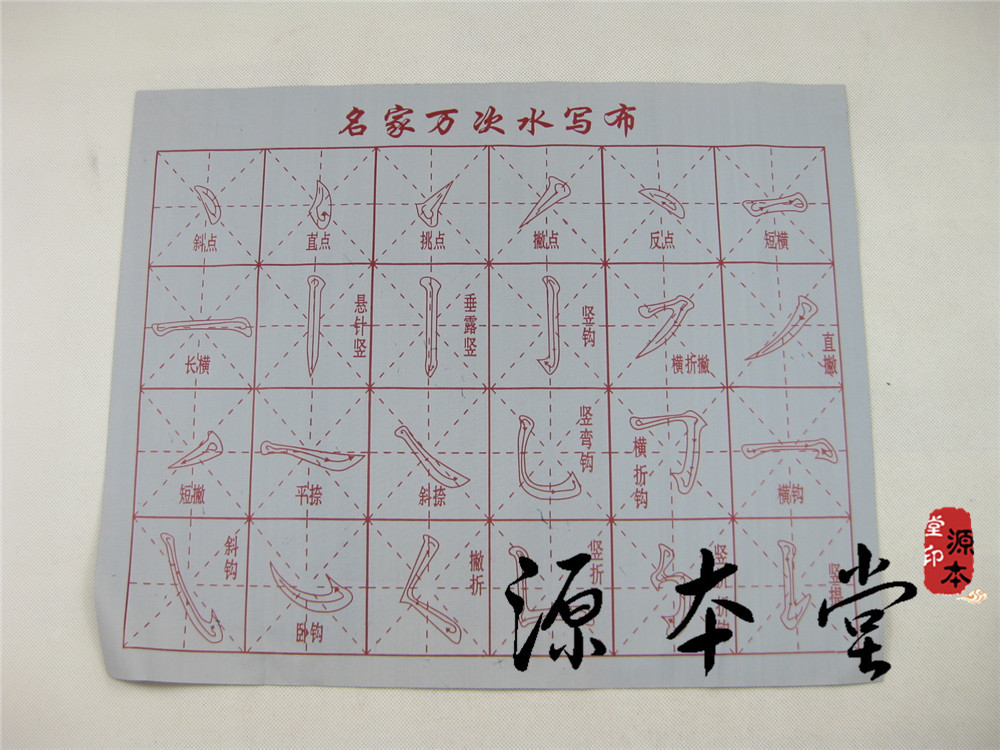 名家万次水写布
斜点
直点
挑点
撇点
反点
短横
长横
悬针竖
垂露竖
竖钩
横折撇
直撇
短撇
平捺
斜捺
竖弯钩
横折钩
横钩
斜钩
卧钩
撇折
竖折
源本堂
源本堂印